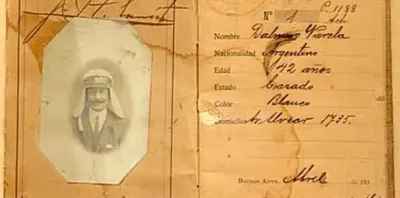 P. 1138
Nº 1
Nombre Dalmiro Varela
Nacionalidad Argentino
Edad 42 años
Estado Casado
Color Blanco
Domicilio Alvear 1735.
Buenos Aires, Abril de 191